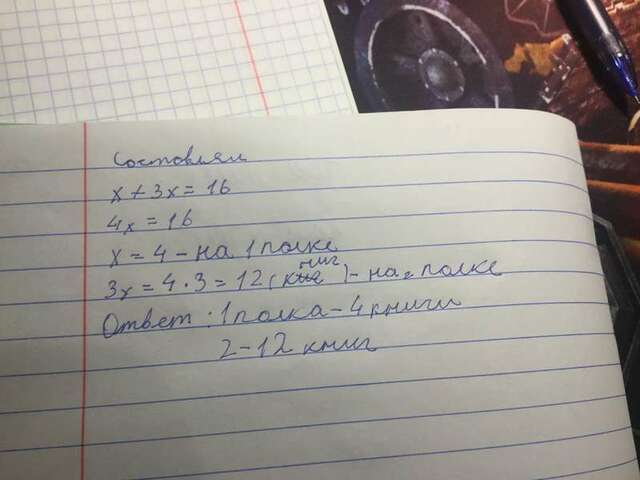 Составим
x + 3x = 16
4x = 16
x = 4 - на 1 полке
3x = 4 · 3 = 12 (книг) - на 2 полке
Ответ: 1 полка - 4 книги
2 - 12 книг